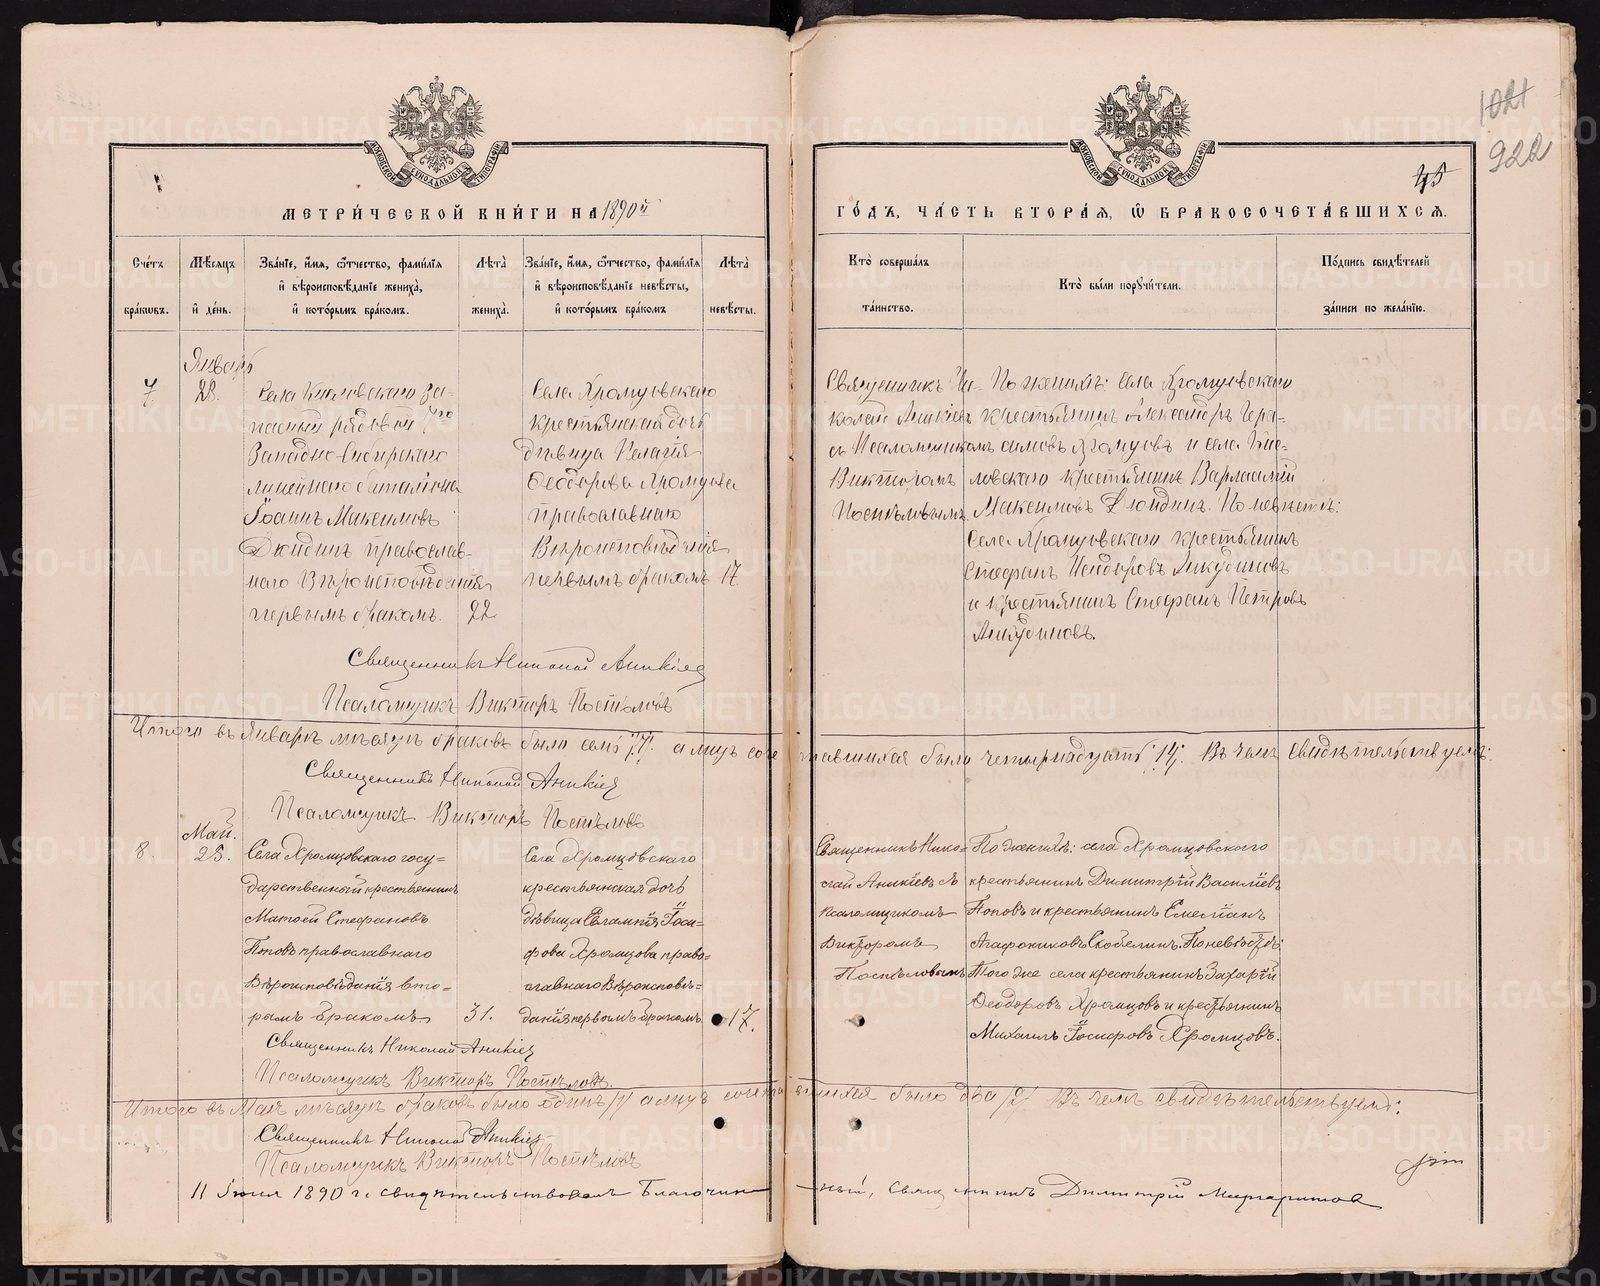 1021
922
45
МЕТРИ́ЧЕСКОЙ КНИ́ГИ НА 1890й
ГО́ДЪ, ЧА́СТЬ ВТОРА́Я, Ѡ БРАКОСОЧЕТА́ВШИХСЯ.
Сче́тъ бра́кѡвъ.
Мѣ́сяцъ и҆ де́нь.
Зва́нїе, и҆́мя, ѻ҆́тчество, фами́лїя
и҆ вѣроисповѣ́данїе жениха̀,
и҆ кото́рымъ бра́комъ.
Лѣта̀ жениха̀.
Зва́нїе, и҆́мя, ѻ҆́тчество, фами́лїя
и҆ вѣроисповѣ́данїе невѣ́сты,
и҆ кото́рымъ бра́комъ
Лѣта̀ невѣ́сты.
Кто̀ соверша́лъ
та́инство.
Кто̀ бы́ли порꙋчи́тели.
По́дпись свидѣ́телей
за́писи по жела́нїю.
Январь
7
28.
Села Кисловскаго за-
пасный рядовой
Западно-Сибирскаго
линейнаго баталіона
Іоаннъ Максимовъ
Дюндинъ православ-
наго Вѣроисповѣданія
первымъ бракомъ.
22
Села Хромцовскаго
крестьянская дочь
дѣвица Пелагія
Ѳеодорова Хромцова
православнаго
Вѣроисповѣданія
первымъ бракомъ
17
Священникъ Ни-
колай Аникіевъ
съ Псаломщикомъ
Викторомъ
Поспѣловымъ.
По женихѣ: села Хромцовскаго
крестьянинъ Александръ Гера-
симовъ Хромцовъ и села Кис-
ловскаго крестьянинъ Варлаамій
Максимовъ Дюндинъ. По невѣстѣ:
Села Хромцовскаго крестьянинъ
Стефанъ Исидоровъ Анкудиновъ
и крестьянинъ Стефанъ Петровъ
Анкудиновъ.
Священникъ Николай Аникіев
Псаломщикъ Викторъ Поспѣловъ
Итого въ Январѣ мѣсяцѣ браковъ было семь /7/. а лицъ сочетавшихся было четырнадцать /14/. Въ чемъ свидѣтельствуемъ:
Священникъ Николай Аникіев
Псаломщикъ Викторъ Поспѣловъ
Май.
8.
25.
Села Хромцовскаго госу=
дарственный крестьянинъ
Матѳей Стефановъ
Поповъ православнаго
Вѣроисповѣданія вто=
рымъ бракомъ
31.
Села Хромцовскаго
крестьянская дочь
дѣвица Евлампія Іоси-
фова Хромцова право=
славнаго Вѣроисповѣ=
данія первымъ бракомъ
17.
Священникъ Нико=
лай Аникіевъ съ
псаломщикомъ
Викторомъ
Поспѣловымъ
По женихѣ: села Хромцовскаго
крестьянинъ Димитрій Василіевъ
Поповъ и крестьянинъ Емеліанъ
Агафониковъ Скобелинъ. По невѣстѣ:
Того же села крестьянинъ Захарій
Ѳеодоровъ Хромцовъ и крестьянинъ
Михаилъ Іосифовъ Хромцовъ.
Священникъ Николай Аникіев
Псаломщикъ Викторъ Поспѣловъ.
Итого въ Маѣ мѣсяцѣ браковъ было одинъ /1/ а лицъ сочетавшихся было два /2/ Въ чемъ свидѣтельствуемъ:
Священникъ Николай Аникіев
Псаломщикъ Викторъ Поспѣловъ
11 Іюня 1890 г. свидѣтельствовалъ Благочинный, священникъ Димитрій Маргаритовъ
METRIKI.GASO-URAL.RU